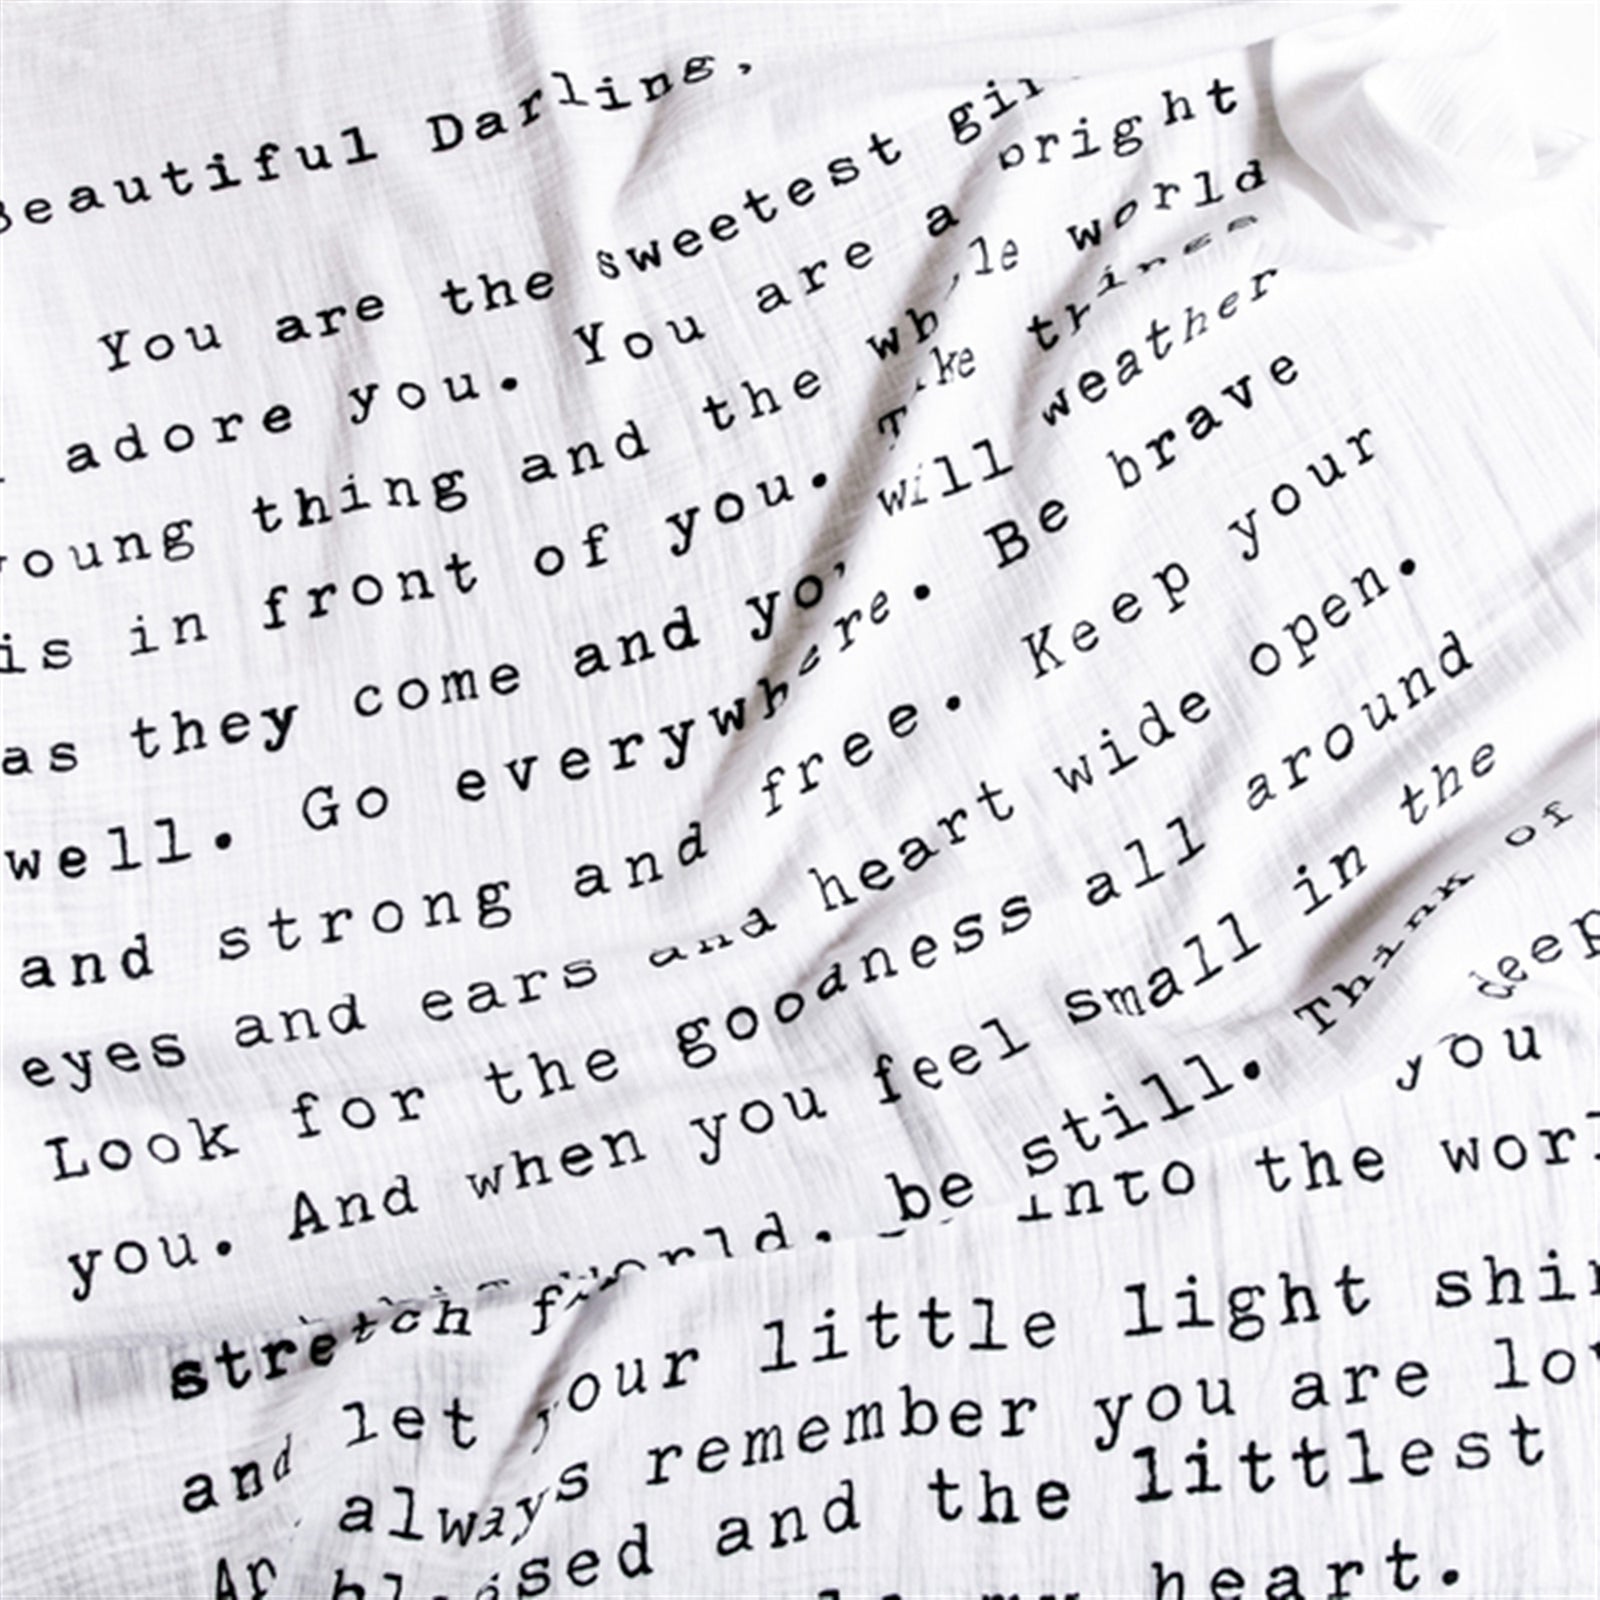 Beautiful Darling,
You are the sweetest
adore you. You are a bright
young thing and the whole world
is in front of you. Take things
as they come and you will weather
well. Go everywhere. Be brave
and strong and free. Keep your
eyes and ears and heart wide open.
Look for the goodness all around
you. And when you feel small in the
world, be still. Think of
deep
stretch you
into the
and let your little light
always remember you are
blessed and the littlest
my heart.